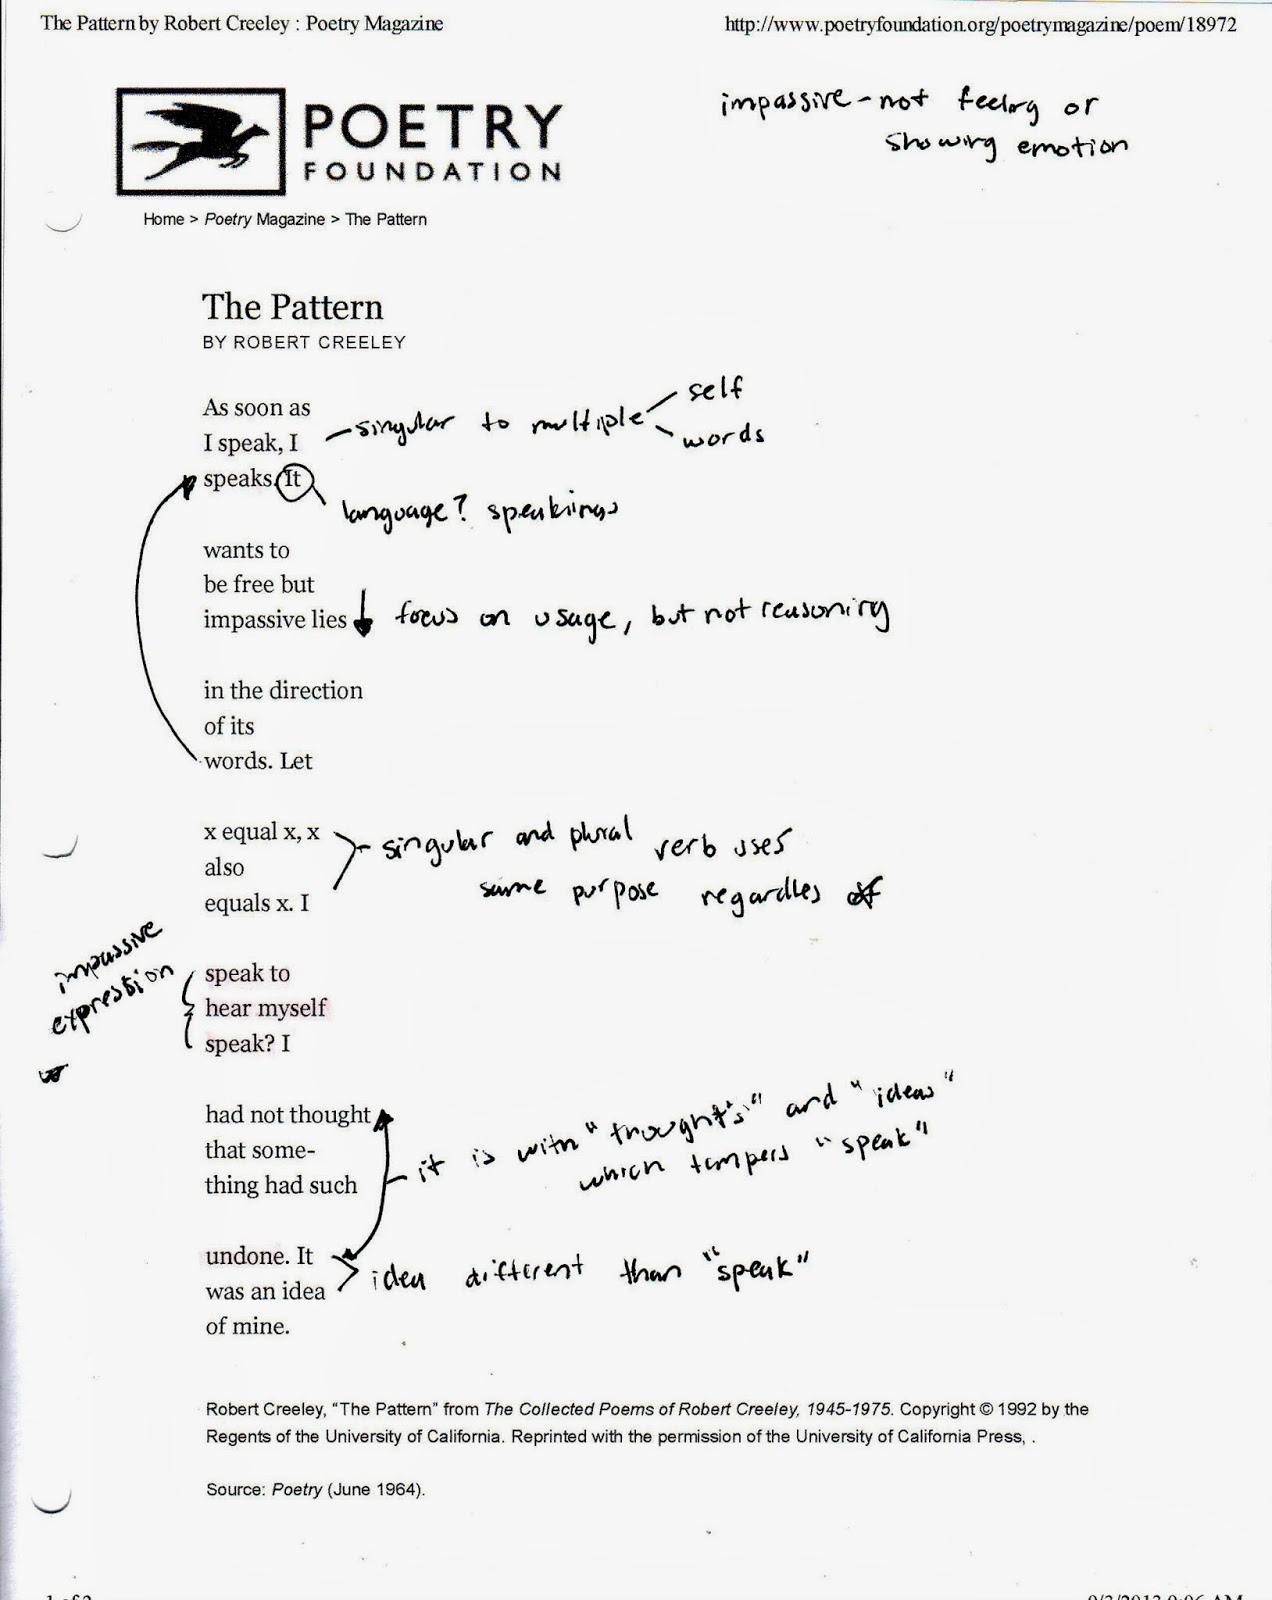 The Pattern by Robert Creeley : Poetry Magazine
http://www.poetryfoundation.org/poetrymagazine/poem/18972
POETRY
FOUNDATION
impassive - not feeling or
showing emotion
Home > Poetry Magazine > The Pattern
The Pattern
BY ROBERT CREELEY
As soon as
I speak, I
singular to multiple
self
words
speaks. It
language? speakings
wants to
be free but
impassive lies
focus on usage, but not reasoning
in the direction
of its
words. Let
x equal x, x
also
equals x. I
singular and plural verb uses
same purpose regardles of
impassive
expression
speak to
hear myself
speak? I
had not thought
that some-
thing had such
it is with "thought's" and "ideas"
which tempers "speak"
undone. It
was an idea
of mine.
idea different than "speak"
Robert Creeley, “The Pattern” from The Collected Poems of Robert Creeley, 1945-1975. Copyright © 1992 by the
Regents of the University of California. Reprinted with the permission of the University of California Press, .
Source: Poetry (June 1964).
1 of 2
9/3/2013 9:06 AM